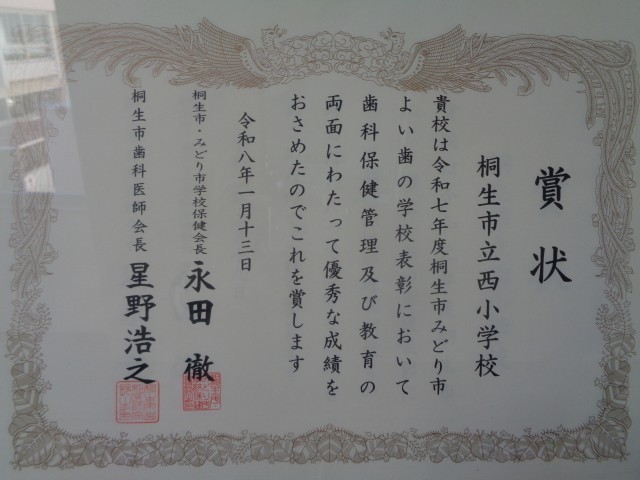 賞状
桐生市立西小学校
貴校は令和七年度桐生市みどり市
よい歯の学校表彰において
歯科保健管理及び教育の
両面にわたって優秀な成績を
おさめたのでこれを賞します
令和八年一月十三日
桐生市・みどり市学校保健会長 永田 徹
桐生市歯科医師会長 星野浩之